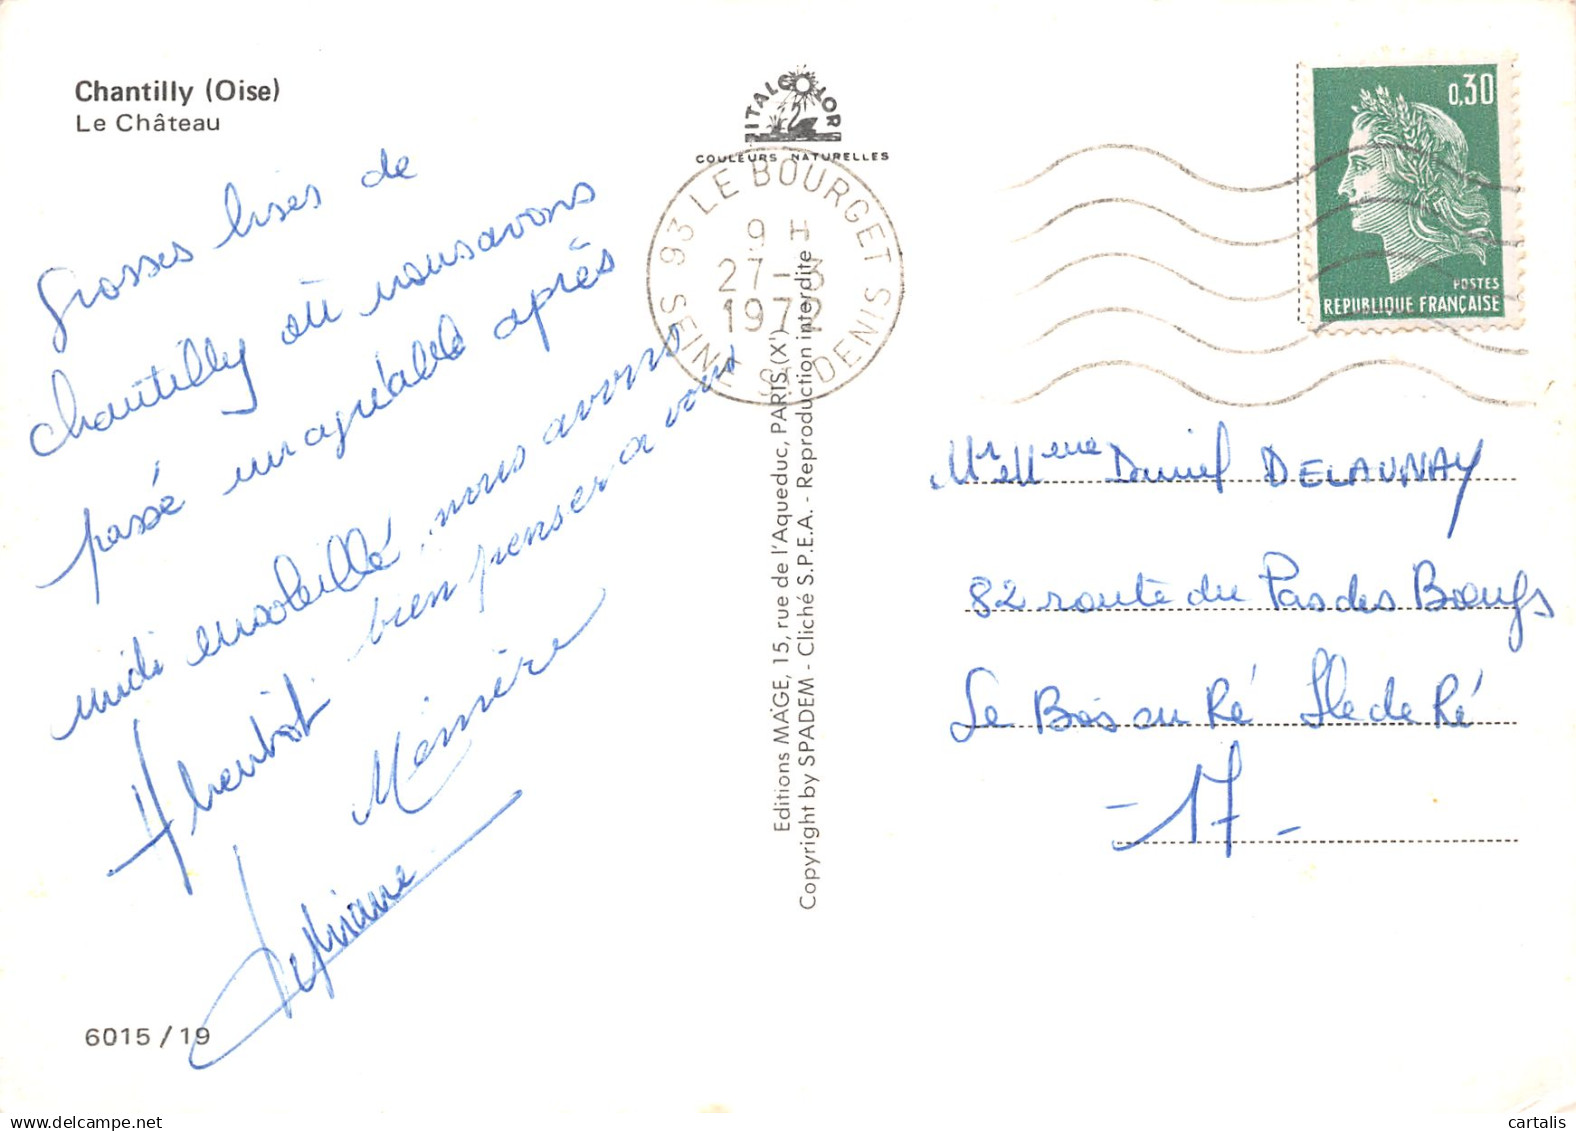 Chantilly (Oise)
Le Château
ITALCOLOR
COULEURS NATURELLES
93 LE BOURGET
9 H
27-3
1972
SEINE ST DENIS
0,30
POSTES
REPUBLIQUE FRANÇAISE
Grosses bises de
Chantilly où nous avons
passé un agréable après
midi ensoleillé, nous avons
bien penser a vous
Mémère
Mr et Mme Daniel DELAUNAY
82 route du Pas des Bœufs
Le Bois en Ré Ile de Ré
- 17 -
Editions MAGE, 15, rue de l'Aqueduc, PARIS (X')
Copyright by SPADEM - Cliché S.P.E.A. - Reproduction interdite
6015 / 19
https://www.delcampe.net
cartalis